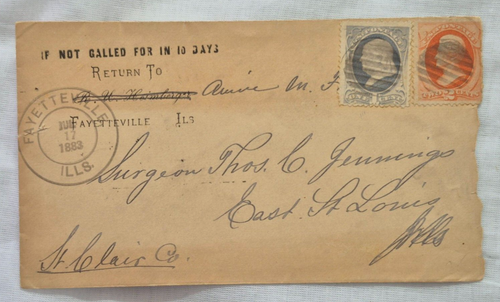 IF NOT CALLED FOR IN 10 DAYS
RETURN TO
R. H. Hamberger
FAYETTEVILLE ILS
FAYETTEVILLE
17
1883
ILLS.
Surgeon Thos. C. Jennings
East St Louis
Ills.
St Clair Co.